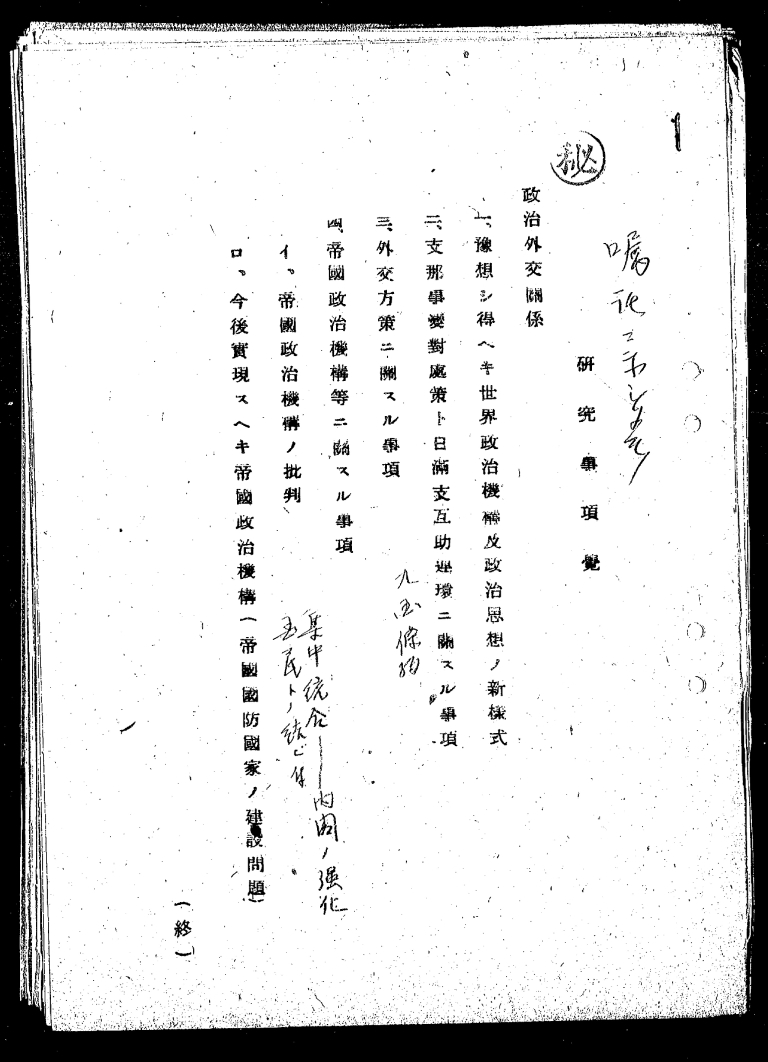 1
秘
囑託ニ示シタル
研究事項覺
政治外交關係
一、豫想シ得ヘキ世界政治機構及政治思想ノ新様式
二、支那事變對處策ト日滿支互助連環ニ關スル事項
三、外交方策ニ關スル事項
九国條約
四、帝國政治機構等ニ關スル事項
イ、帝國政治機構ノ批判
集中統合——内閣ノ強化
国民トノ結ビ付
ロ、今後實現スヘキ帝國政治機構(帝國國防國家ノ建設問題)
(終)